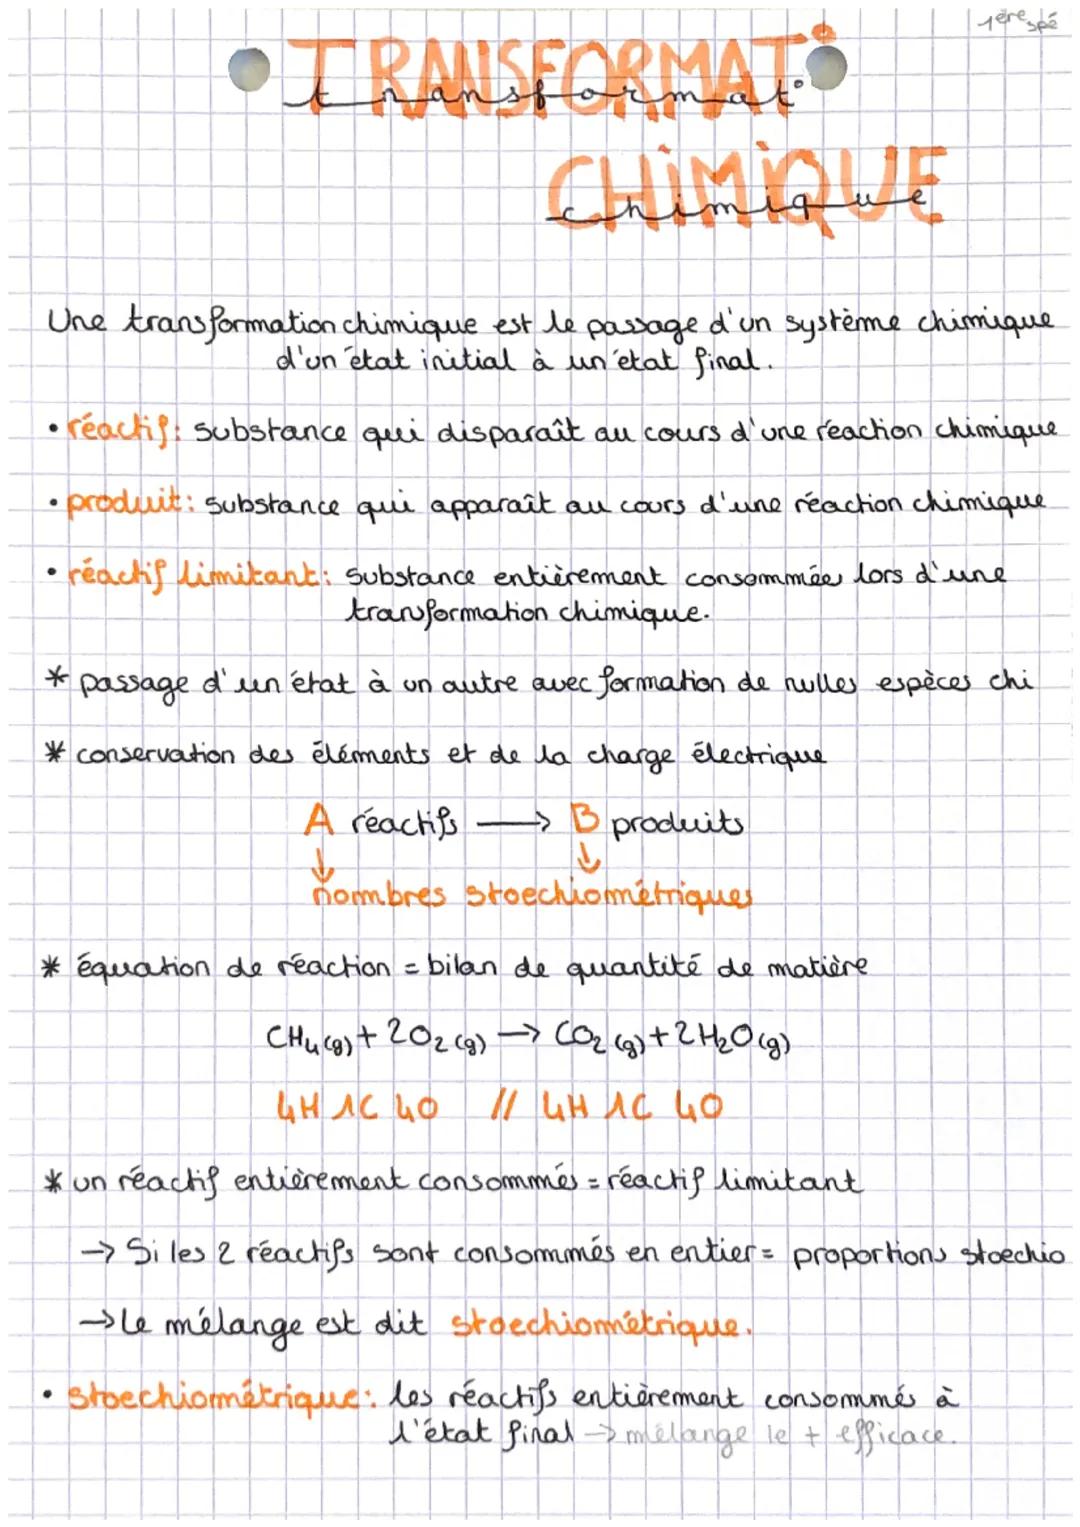 1ère spé
TRANSFORMAT°
transformat°
CHIMIQUE
chimique
Une transformation chimique est le passage d'un système chimique
d'un état initial à un état final.
• réactif: substance qui disparaît au cours d'une réaction chimique
• produit: substance qui apparaît au cours d'une réaction chimique
• réactif limitant: substance entièrement consommée lors d'une
transformation chimique.
* passage d'un état à un autre avec formation de nvlles espèces chi
* conservation des éléments et de la charge électrique
A réactifs → B produits
↓ ↓
nombres stoechiométriques
* équation de réaction = bilan de quantité de matière
CH₄(g) + 2O₂(g) → CO₂(g) + 2H₂O(g)
4H 1C 4O // 4H 1C 4O
* un réactif entièrement consommés = réactif limitant
→ Si les 2 réactifs sont consommés en entier = proportions stoechio
→ Le mélange est dit stoechiométrique.
• stoechiométrique: les réactifs entièrement consommés à
l'état final → mélange le + efficace.